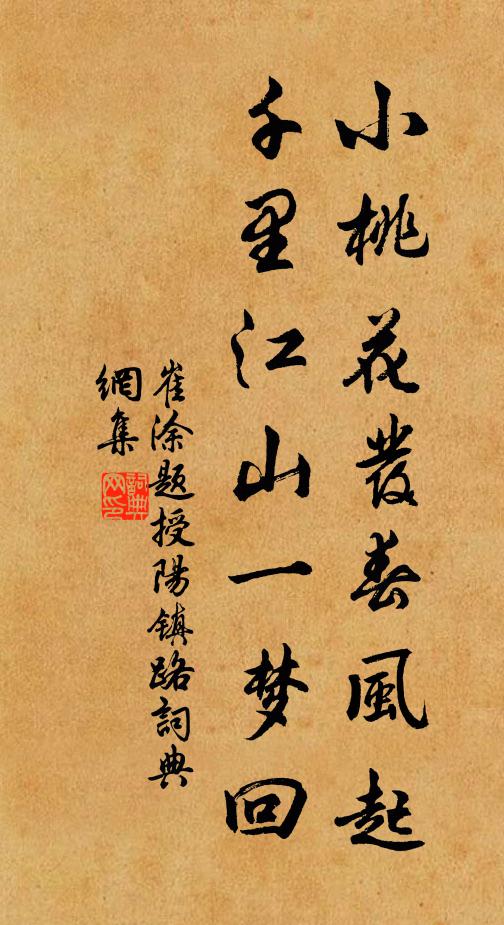 小桃花發春風起
千里江山一梦回
崔涂題授陽镇路詞典
網集
詞典
网印